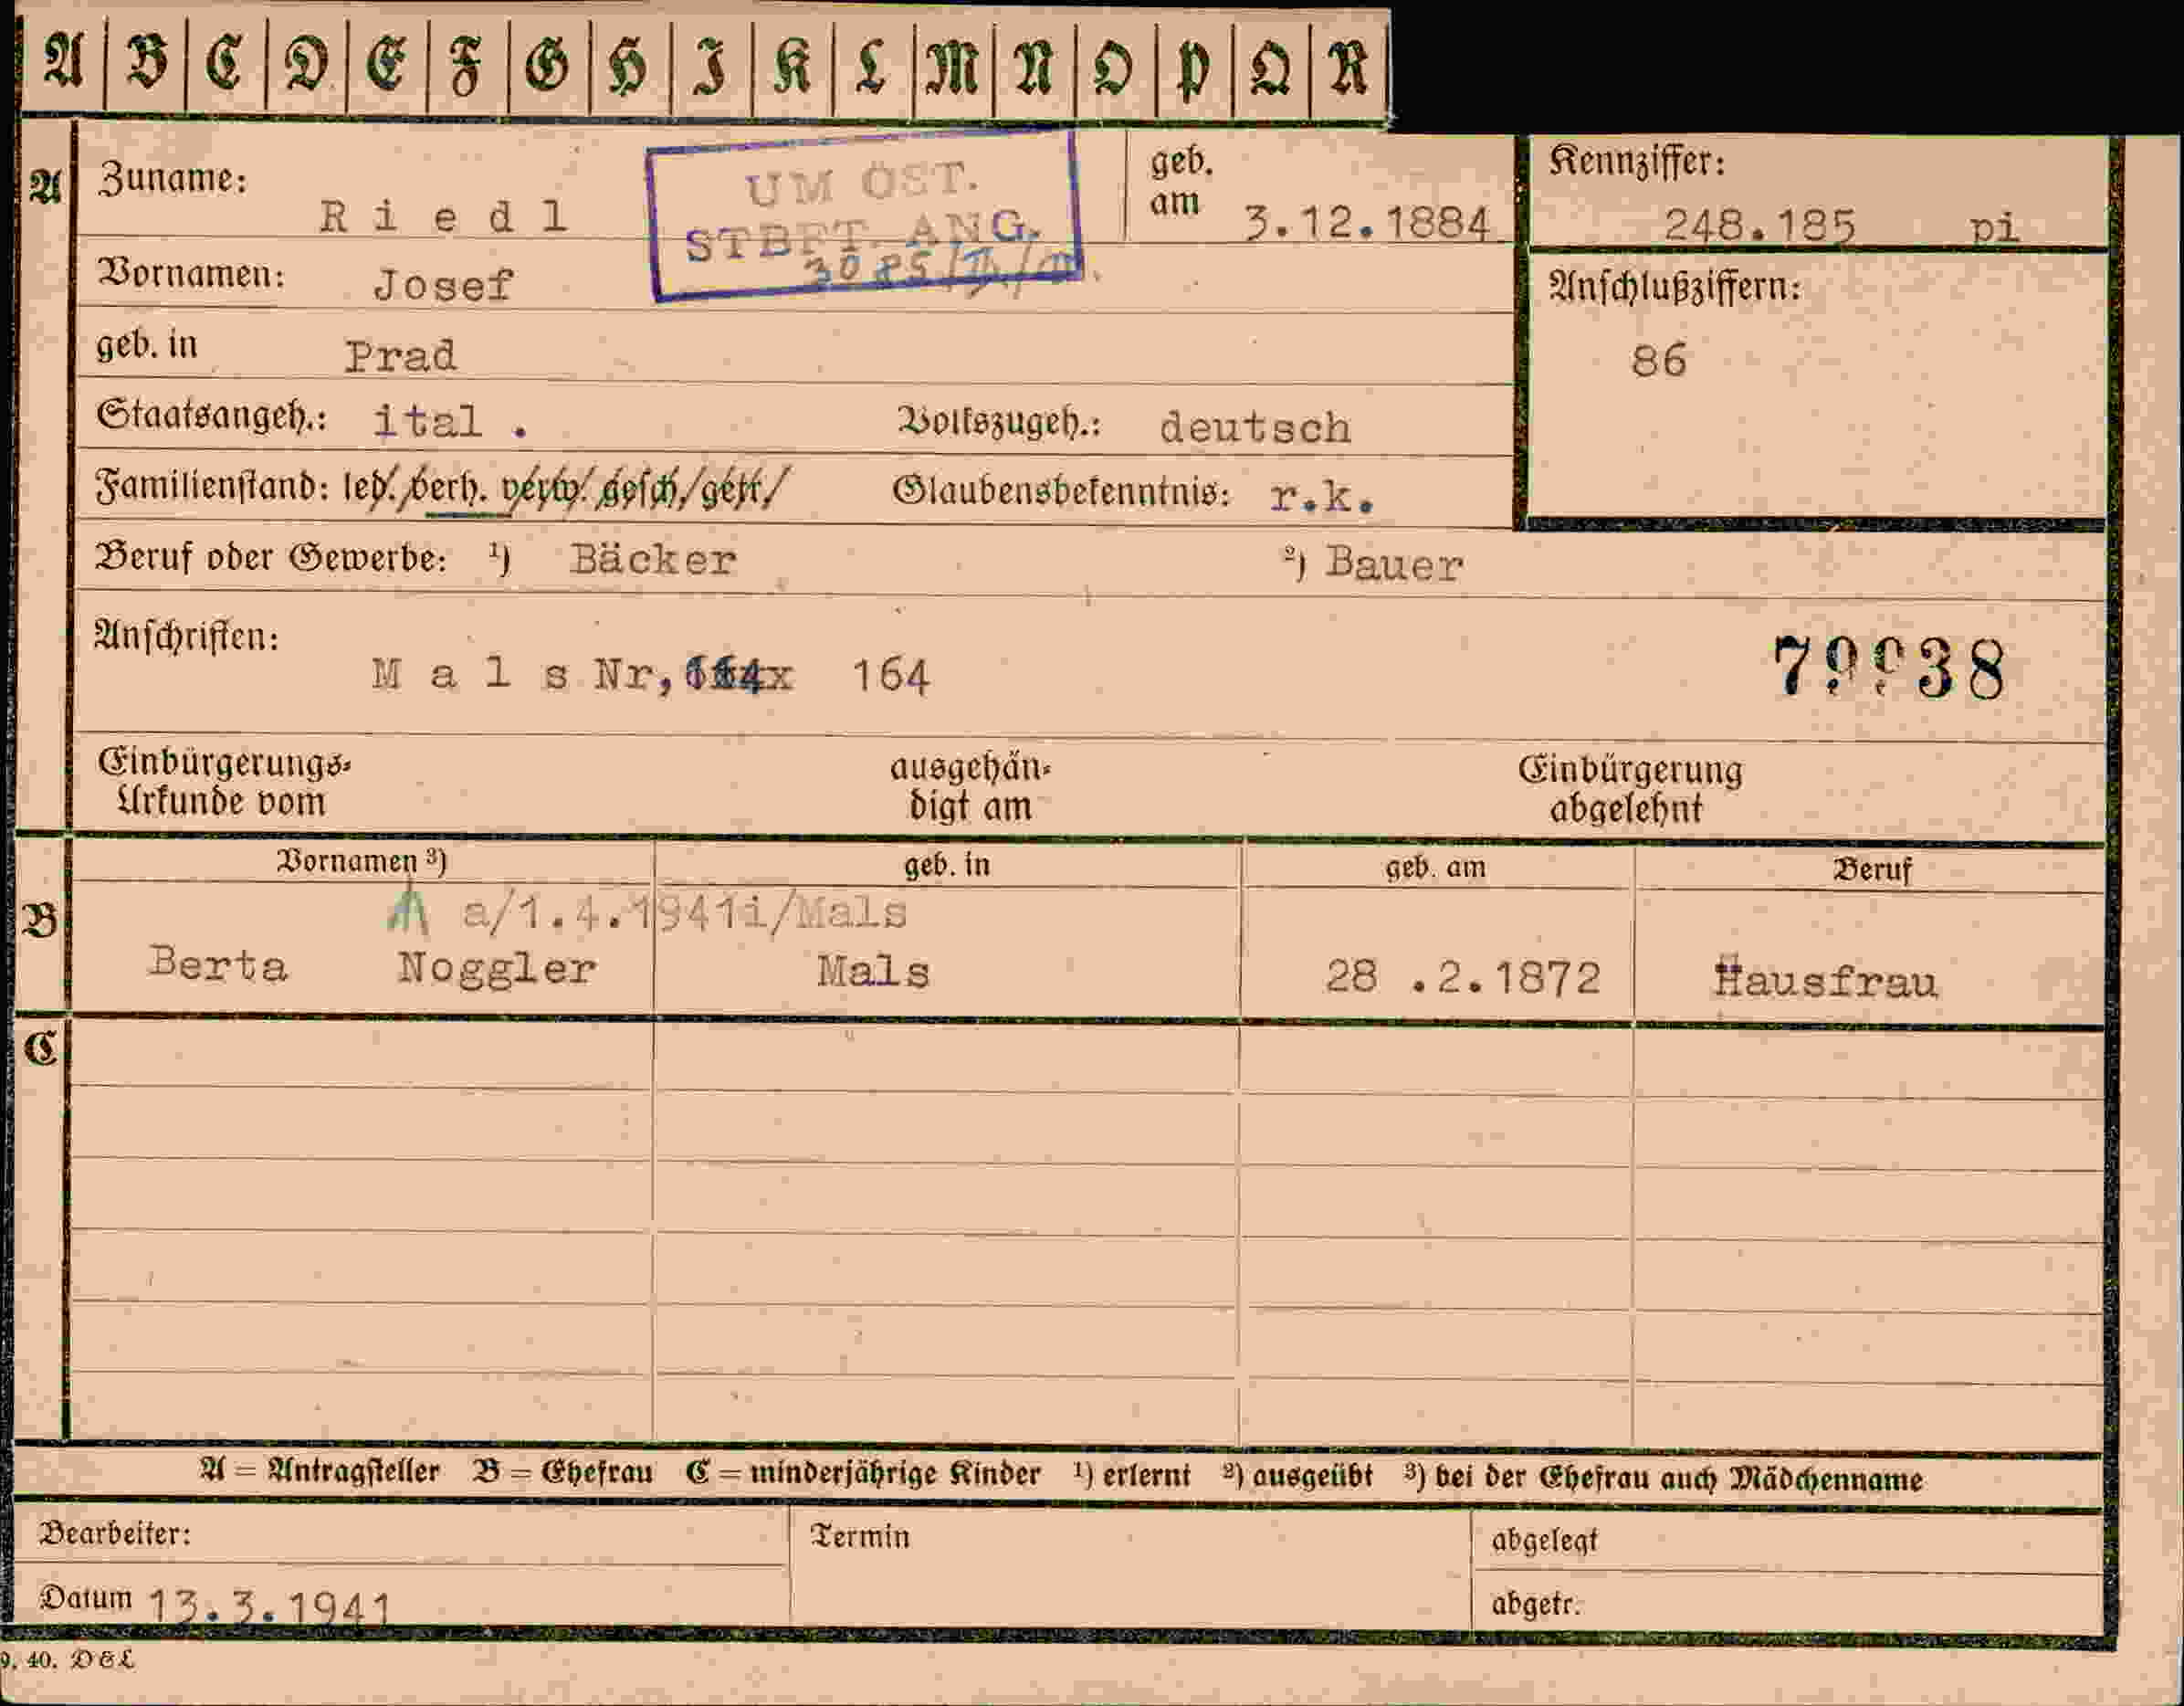 A B C D E F G H I K L M N O P Q R
A Zuname: Riedl
UM ÖST.
STBFT. ANG.
geb. am 3.12.1884
Kennziffer: 248.185 pi
Vornamen: Josef
Anschlußziffern: 86
geb. in Prad
Staatsangeh.: ital . Volkszugeh.: deutsch
Familienstand: led. verh. verw. gesch. getr. Glaubensbekenntnis: r.k.
Beruf oder Gewerbe: ¹) Bäcker ²) Bauer
Anschriften:
Mals Nr, 164
Einbürgerungs-
Urkunde vom
ausgehän-
digt am
Einbürgerung
abgelehnt
B Vornamen ³) geb. in geb. am Beruf
a/1.4.1941i/Mals
Berta Noggler Mals 28 .2.1872 Hausfrau
C
A = Antragsteller B = Ehefrau C = minderjährige Kinder ¹) erlernt ²) ausgeübt ³) bei der Ehefrau auch Mädchenname
Bearbeiter: Termin abgelegt
Datum 13.3.1941 abgetr.
9. 40. D&L